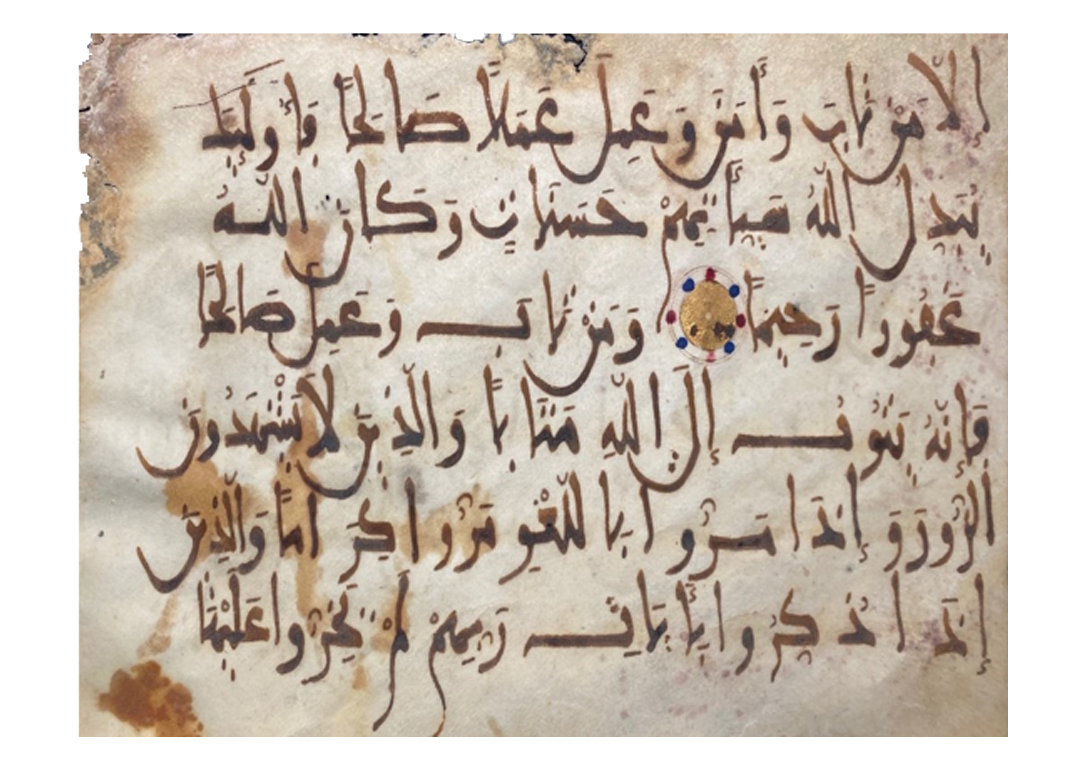 إِلَّا مَنْ تَابَ وَأَمَنَ وَعَمِلَ عَمَلًا صَالِحًا فَأُوْلَئِكَ
يُبَدِّلُ اللَّهُ سَيِّأَتِهِمْ حَسَنَاتٍ وَكَانَ اللَّهُ
غَفُورًا رَحِيمًا وَمَنْ تَابَ وَعَمِلَ صَالِحًا
فَإِنَّهُ يَتُوبُ إِلَى اللَّهِ مَتَابًا وَالَّذِينَ لَا يَشْهَدُونَ
الزُّورَ وَإِذَا مَرُّوا بِاللَّغْوِ مَرُّوا كِرَامًا وَالَّذِينَ
إِذَا ذُكِّرُوا بِأَيَاتِ رَبِّهِمْ لَمْ يَخِرُّوا عَلَيْهَا